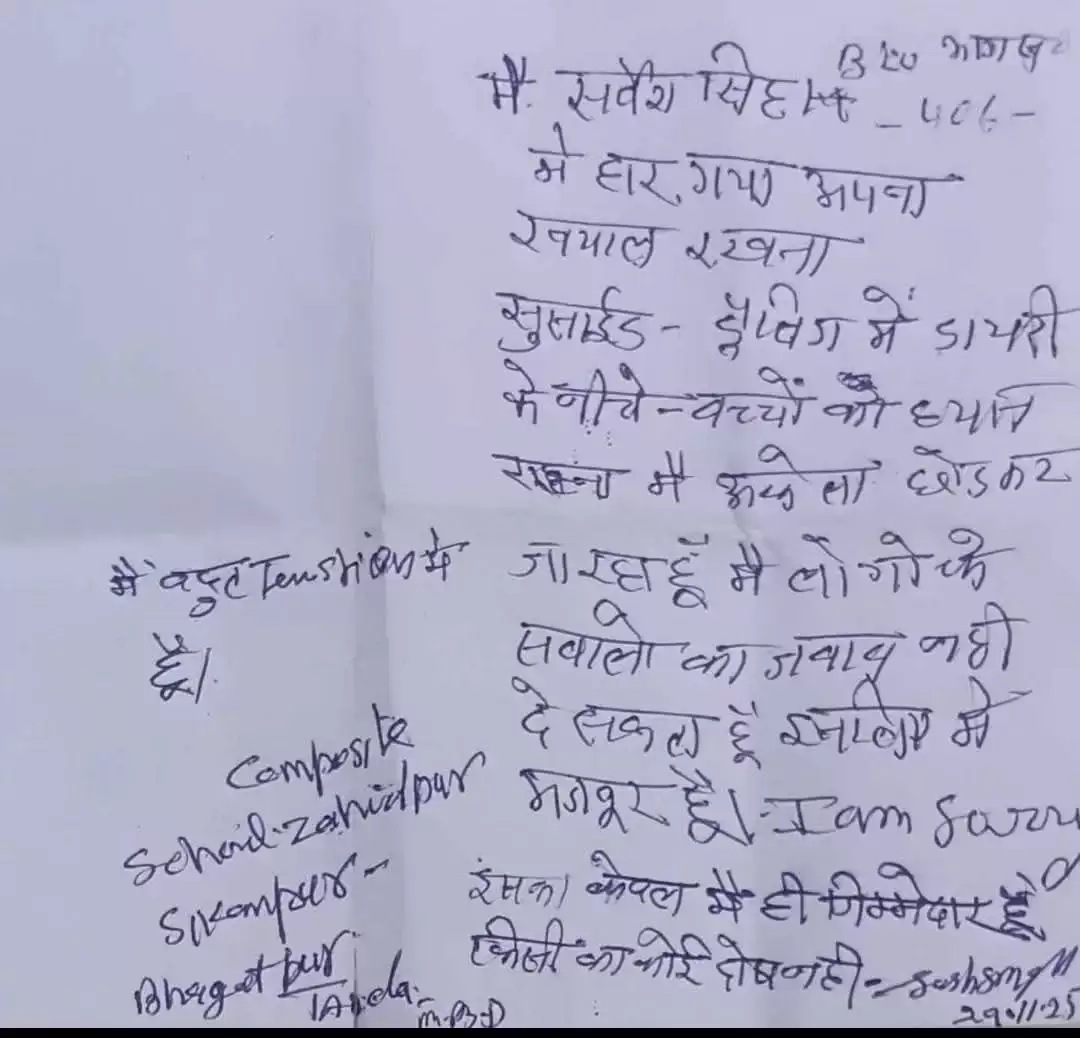 BLO भाग सं०
मै सर्वेश सिंह - 406 -
मे हार गया अपना
ख्याल रखना
सुसाईड - ड्रैविग में डायरी
के नीचे - बच्चों को ध्यान
रखना मै अकेला छोडकर
जा रहा हूँ मै लोगो के
सवालो का जवाब नही
दे सकता हूँ इसलिए मे
मजबूर हूँ। - I am Sorry
इसका केवल मै ही जिम्मेदार हूँ
किसी का कोई दोष नही -
29.11.25
मै बहुत Tenshion मे
हूँ।
Composite
School Zahidpur
Sikampur -
Bhagatpur
Tanda
M.B.D